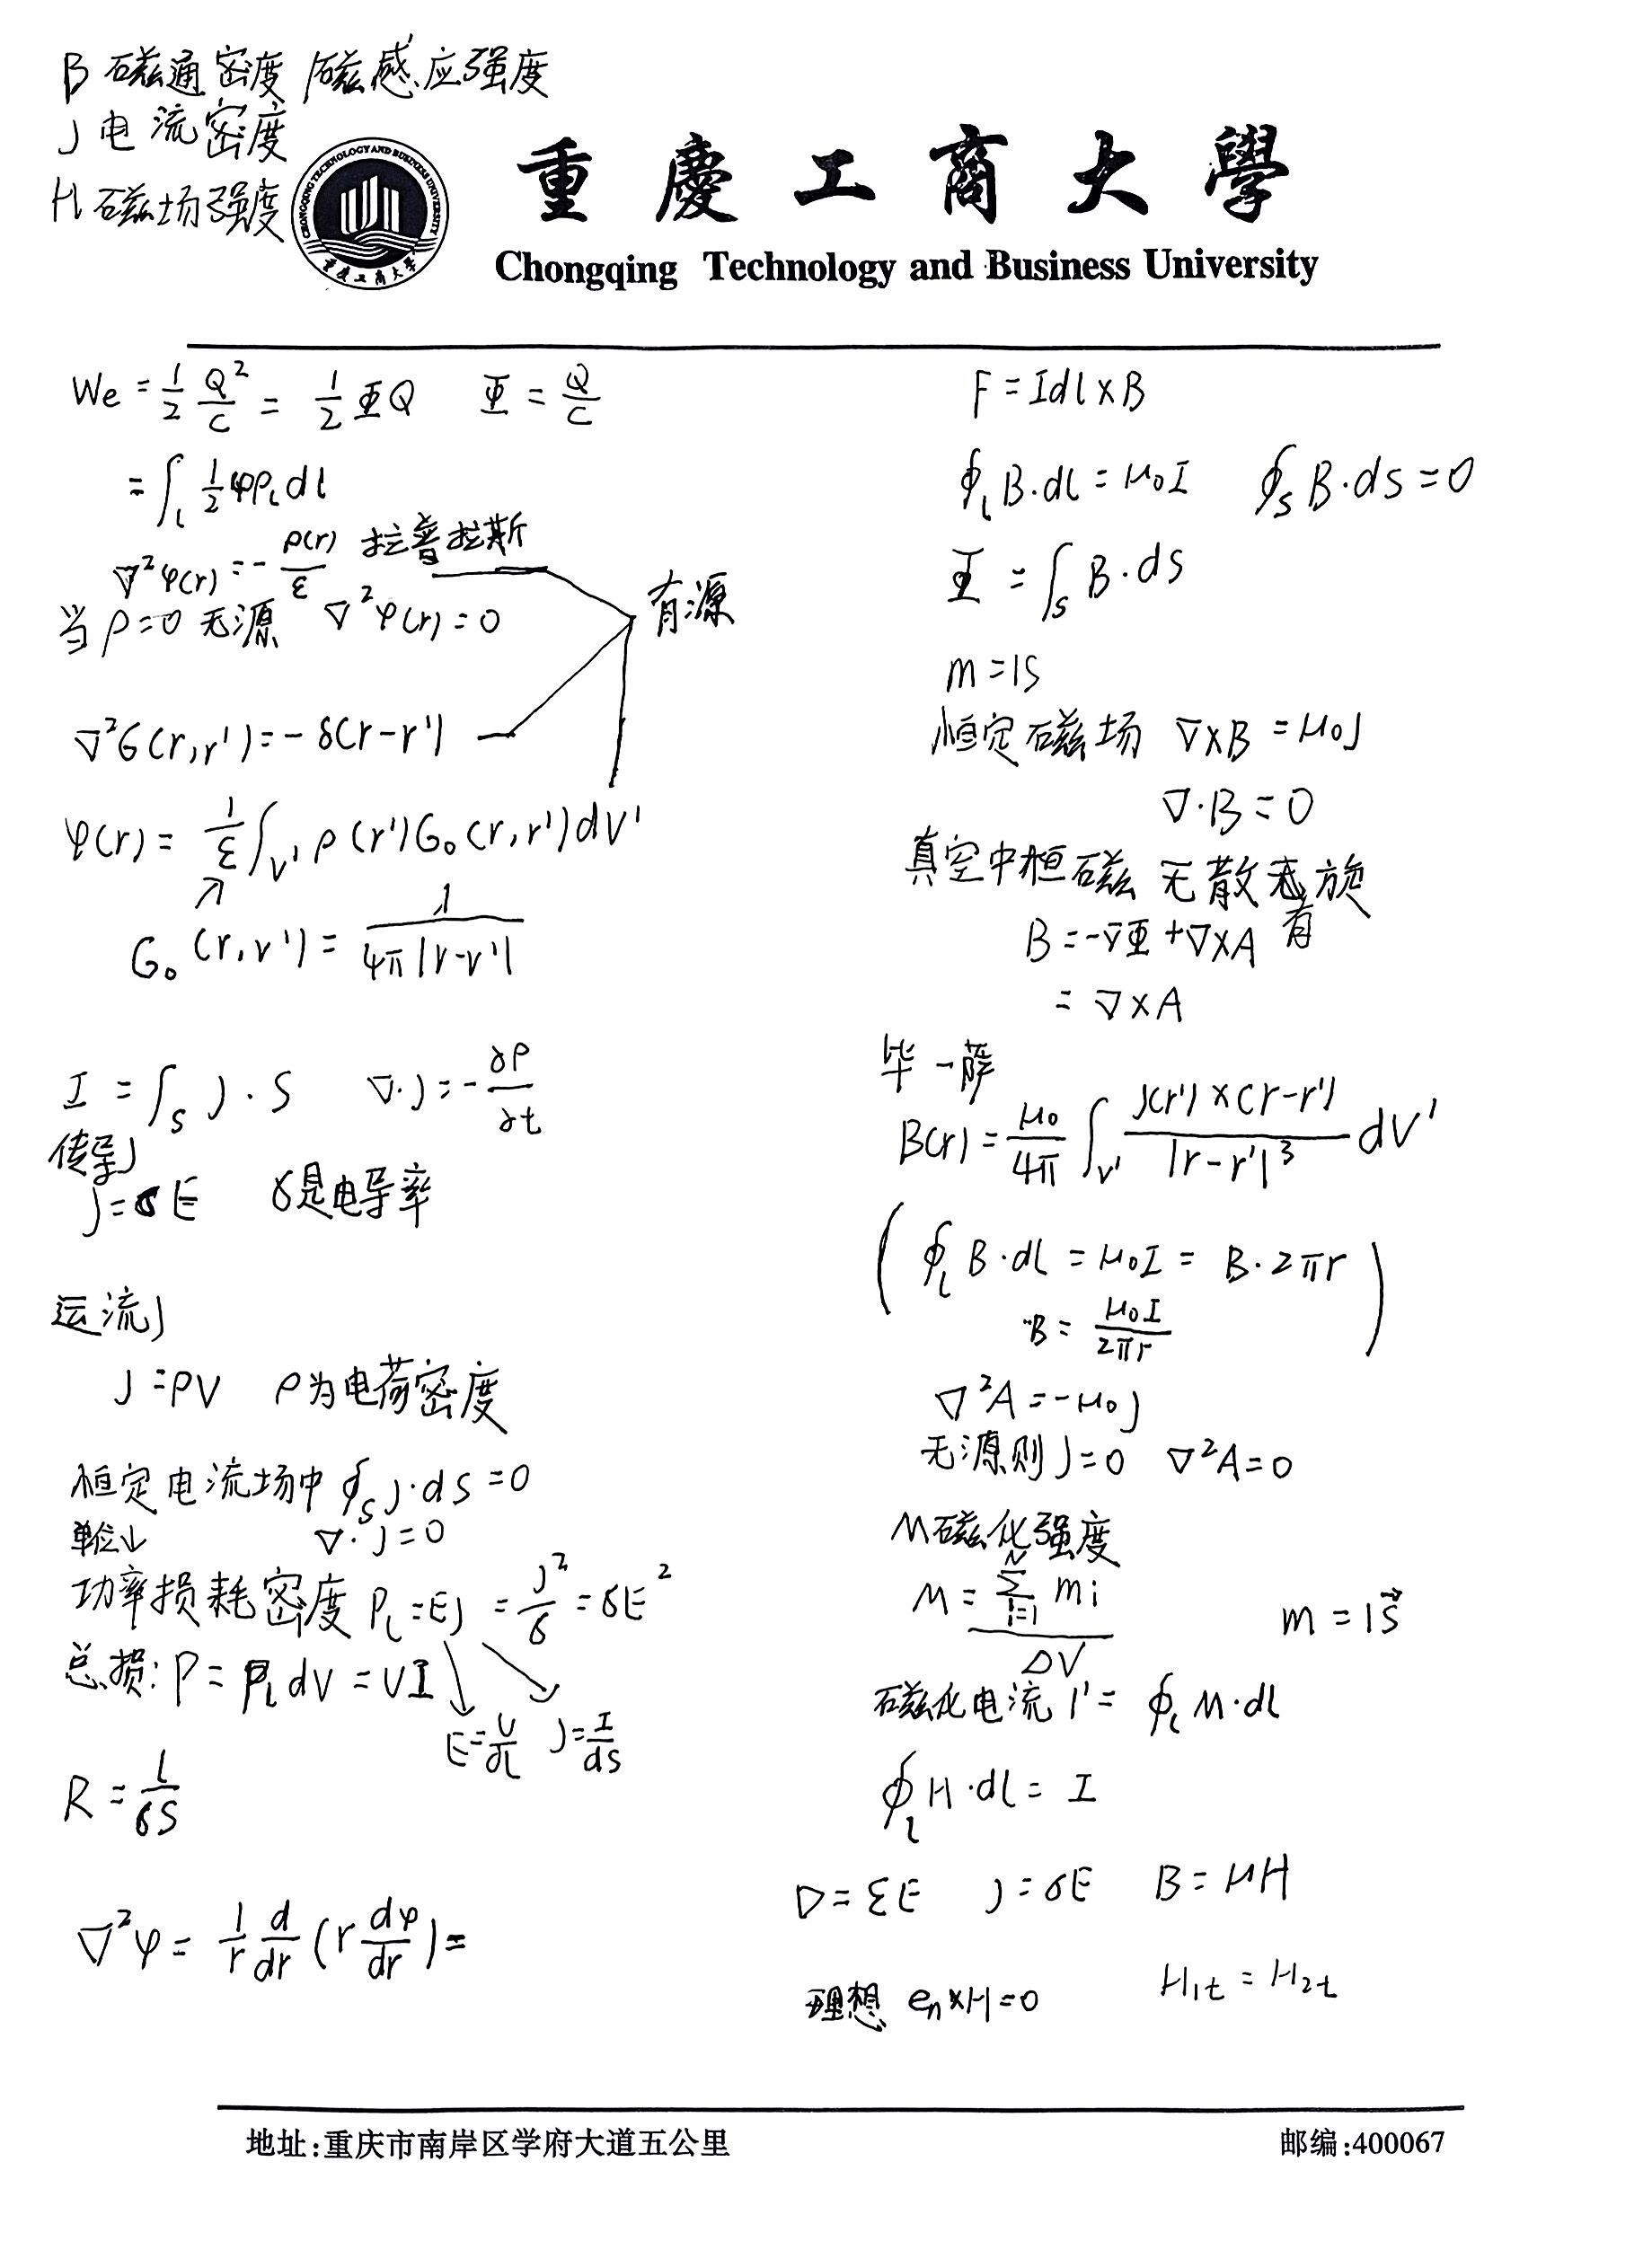 B 磁通密度/磁感应强度
J 电流密度
H 磁场强度
CHONGQING TECHNOLOGY AND BUSINESS UNIVERSITY
重庆工商大学
重慶工商大學
Chongqing Technology and Business University
We = 1/2 Q²/C = 1/2 ΦQ Φ = Q/C
= ∫_l 1/2 φρ_l dl
∇²φ(r) = -ρ(r)/ε 拉普拉斯
当ρ=0 无源 ∇²φ(r)=0
有源
∇²G(r,r') = -δ(r-r')
φ(r) = 1/ε ∫_V' ρ(r')G₀(r,r')dV'
G₀(r,r') = 1/(4π|r-r'|)
I = ∫_S J·S ∇·J = -∂ρ/∂t
传导J
J=σE σ是电导率
运流J
J=ρV ρ为电荷密度
恒定电流场中 ∮_S J·dS=0
单位↓ ∇·J=0
功率损耗密度 P_l=EJ = J²/σ = σE²
总损: P = P_l dV = UI
E=U/dl J=I/dS
R = l/(σS)
∇²φ = 1/r d/dr (r dφ/dr) =
F = Idl×B
∮_l B·dl = μ₀I ∮_S B·dS = 0
Φ = ∫_S B·dS
m = IS
恒定磁场 ∇×B = μ₀J
∇·B = 0
真空中恒磁 无散有旋
B = -∇Φ + ∇×A
= ∇×A
毕-萨
B(r) = μ₀/4π ∫_V' J(r')×(r-r')/|r-r'|³ dV'
( ∮_l B·dl = μ₀I = B·2πr
B = μ₀I/2πr )
∇²A = -μ₀J
无源则J=0 ∇²A=0
M磁化强度
M = Σ_{i=1}^{N} mi / ΔV m = IS⃗
磁化电流 I' = ∮_l M·dl
∮_l H·dl = I
D = εE J = σE B = μH
理想 e_n×H=0 H₁t = H₂t
地址:重庆市南岸区学府大道五公里 邮编:400067